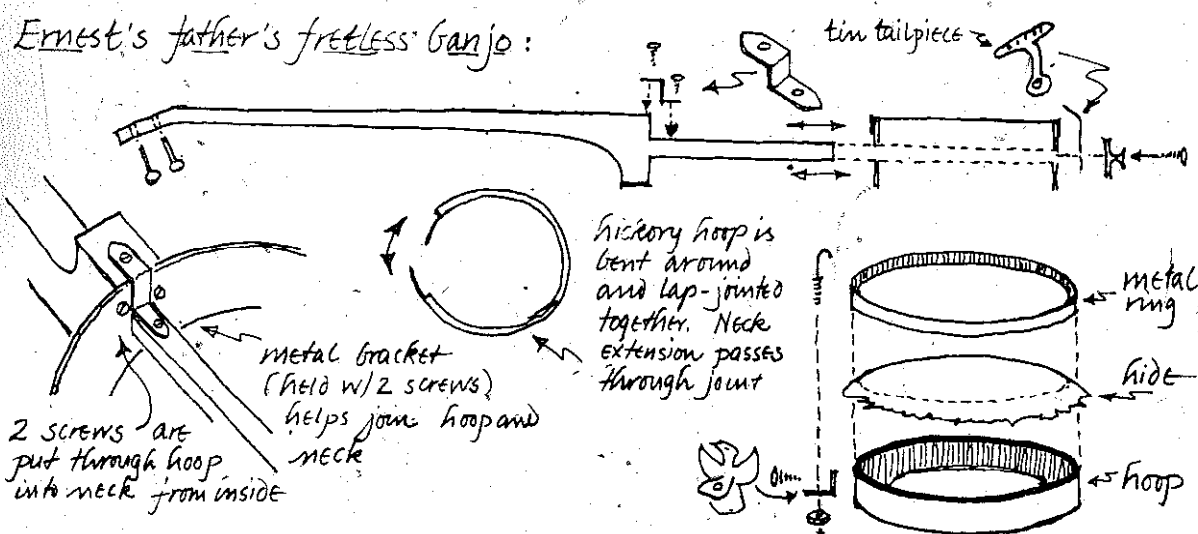 Ernest's father's fretless banjo:
tin tailpiece
hickory hoop is
bent around
and lap-jointed
together. Neck
extension passes
through joint
metal
ring
hide
hoop
metal bracket
(held w/2 screws)
helps join hoop and
neck
2 screws are
put through hoop
into neck from inside